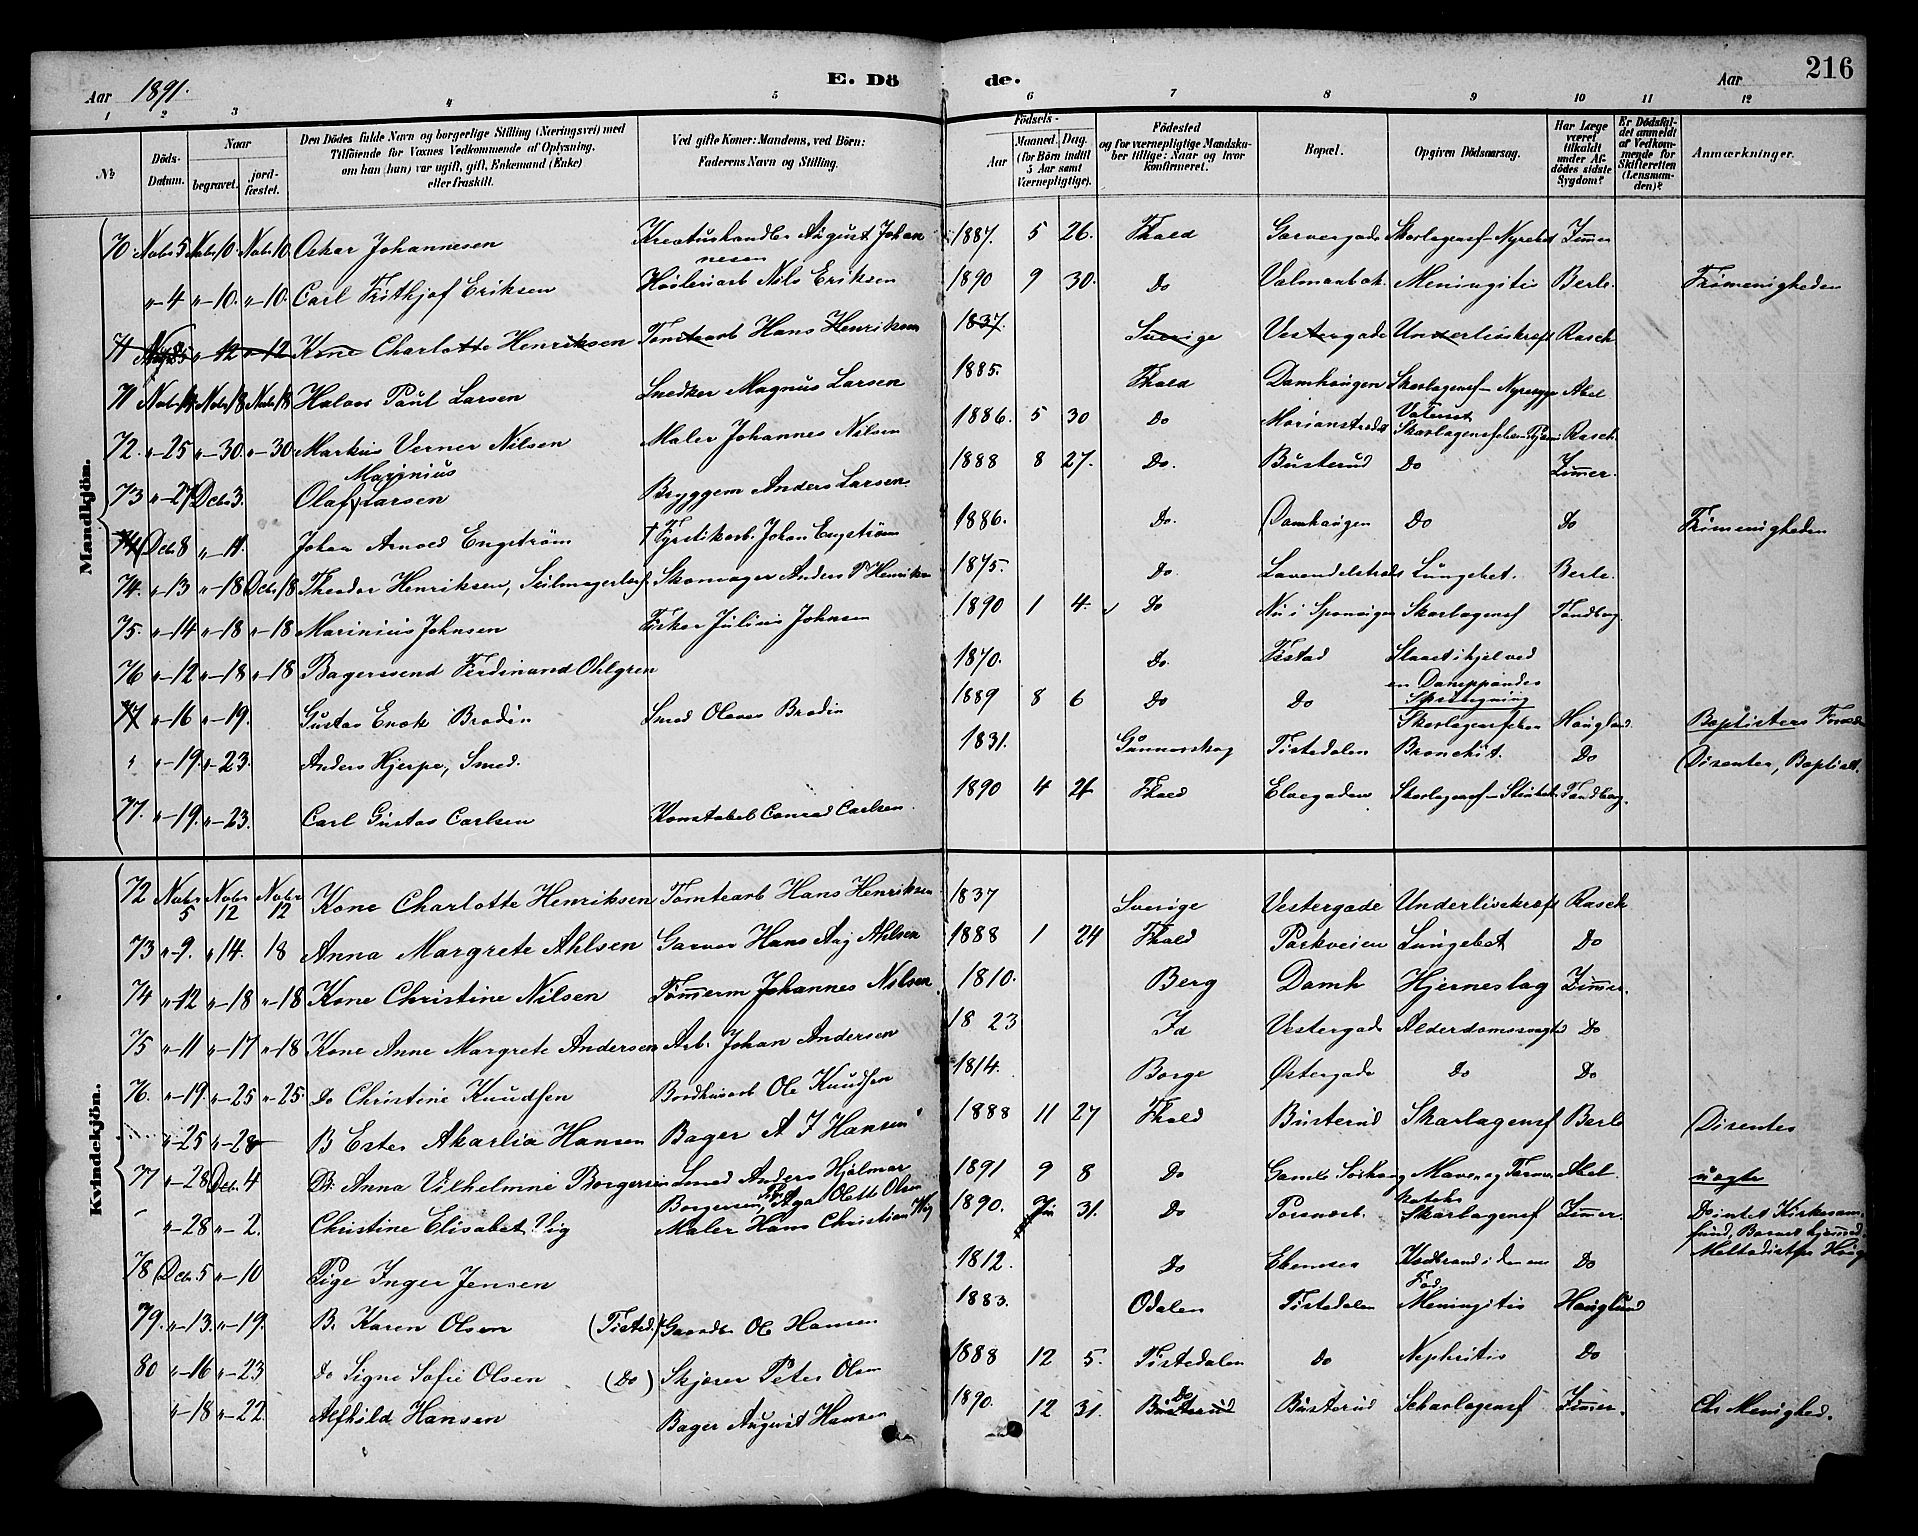 Aar 1891. E. Dö de. Aar 216
1 2 3 4 5 6 7 8 9 10 11 12
№ Döds-Datum. Naar begravet. jordfæstet. Den Dödes fulde Navn og borgerlige Stilling (Næringsvei) med Tilföiende for Voxnes Vedkommende af Oplysning, om han (hun) var ugift, gift, Enkemand (Enke) eller fraskilt. Ved gifte Koner: Mandens, ved Börn: Faderens Navn og Stilling. Födsels- Aar Maaned. Dag. (for Börn indtil 5 Aar samt Værnepligtige). Födested og for værnepligtige Mandskaber tillige: Naar og hvor konfirmeret. Bopæl. Opgiven Dödsaarsag. Har Læge været tilkaldt under Afdödes sidste Sygdom? Er Dödsfaldet anmeldt af Vedkommende for Skifteretten (Lensmanden)? Anmærkninger.
Mandkjön.
70 Nobr 5 Nobr 10 Nobr 10 Oskar Johannesen Kreaturhandler August Johannesen 1887. 5 26. Fhald Garvergade Skarlagensf - Nyrebet Zimer
" 4 " 10. " 10. Carl Frithjof Eriksen Høvleriarb Nils Eriksen 1890 9 30. Do Valmaabak. Meningitis Berle. Frimenigheden
71 5 " 12 " 12 Kone Charlotte Henriksen Tomtearb Hans Henriksen 1837. Sverige Vestergade Underlivskræft Rasch
71 Nobr 14 Nobr 18 Nobr 18 Paul Larsen Snedker Magnus Larsen 1885. Fhald Damhaugen Skarlagensf - Abel
72. " 25 " 30. " 30. Markus Verner Nilsen Maler Johannes Nilsen 1886. 5 30 Do Rasch.
73 " 27 Decbr 3. Olaf Marinius Larsen Bryggem Anders Larsen 1888 8 27. Do. Busterud Do Zimer.
74 Decbr 8 " 11. Johan Arnold Engström † Fyrstikarb. Johan Engström 1886. Do. Damhaugen Do Do Frimenigheden
74. " 13 " 18 Decbr 18 Theodor Henriksen, Seilmagerlærl. Skomager Anders P Henriksen 1875 Do. Lavendelstræde Lungebet. Berle.
75. " 14 " 18 " 18 Marinius Johnsen Fisker Julius Johnsen 1890 1 4. Do Nu i Sponvigen Skarlagensf Tandberg
76 " 12 " 18 " 18 Bagersvend Ferdinand Ohlgren 1870. Do. Tistad Slaaet ihjel ved en Damppandes Sprengning
77 " 16 " 19. Gustav Enok Brodin Smed Olaves Brodin 1889 8 6 Do Do Skarlagensfeber Hauglund Baptisters
" " 19. " 23. Anders Hjerpe, Smed. 1831. Gunnarskog Tistedalen Bronchit. Do Disenter, Baptist.
77. " 19. " 23. Carl Gustav Carlsen Konstabel Conrad Carlsen. 1890 4 Fhald Elvegaden Skarlagensf - Tandberg.
Kvindekjön.
72 Nobr 5 Nobr 12 Nobr 12 Kone Charlotte Henriksen Tomtearb Hans Henriksen 1837 Sverige Vestergade Underlivskræft Rasch
73 " 9. " 14. 18 Anna Margrete Ahlsen Garver Hans Aug Ahlsen 1888 1 24 Fhald Parkveien Lungebet Do
74 " 12 " 18 " 18 Kone Christine Nilsen Tömerm Johannes Nilsen 1810. Berg Damh Hjerneslag Zimer.
75 " 11 " 17 " 18 Kone Anne Margrete Andersen Arb. Johan Andersen 1823 Id Vestergade Alderdomssvaghed Do
76. " 19. " 25 " 25. Do Christine Knudsen Bordhusarb Ole Knudsen 1814. Borge Østergade Do Do
" 25 " 28 B Ester Akarlia Hansen Bager A J Hansen 1888 11 27 Fhald Busterud Skarlagensf Berle Disenter
77 " 28 Decbr 4 B. Anna Vilhelmine Borgersen Smed Anders Hjalmar Borgersen, Olette Olsen 1891 9 8 Do Gamle Mave og Tarmkatarh Abel uægte
" " 28 " 2. Christine Elisabet Vig Maler Hans Christian Vig 1890. 31. Do Skarlagensf Zimer.
78 Decbr 5 " 10 Pige Inger Jensen 1812. Do Ebenezer Koldbrand i den ene Fod Do
79. " 13. " 19. B. Karen Olsen (Tisted.) Gaardbr Ole Hansen 1883. Odalen Tistedalen Meningitis Hauglund
80 " 16 " 23 Do Signe Sofie Olsen (Do) Skjærer Peter Olsen 1888 12 5. Tistedalen Do Nephritis Do
" 18 " 22. Alfhild Hansen Bager August Hansen 1890. 12 31. Busterud Do Busterud Scharlagensf Zimer. Chr Menighed.